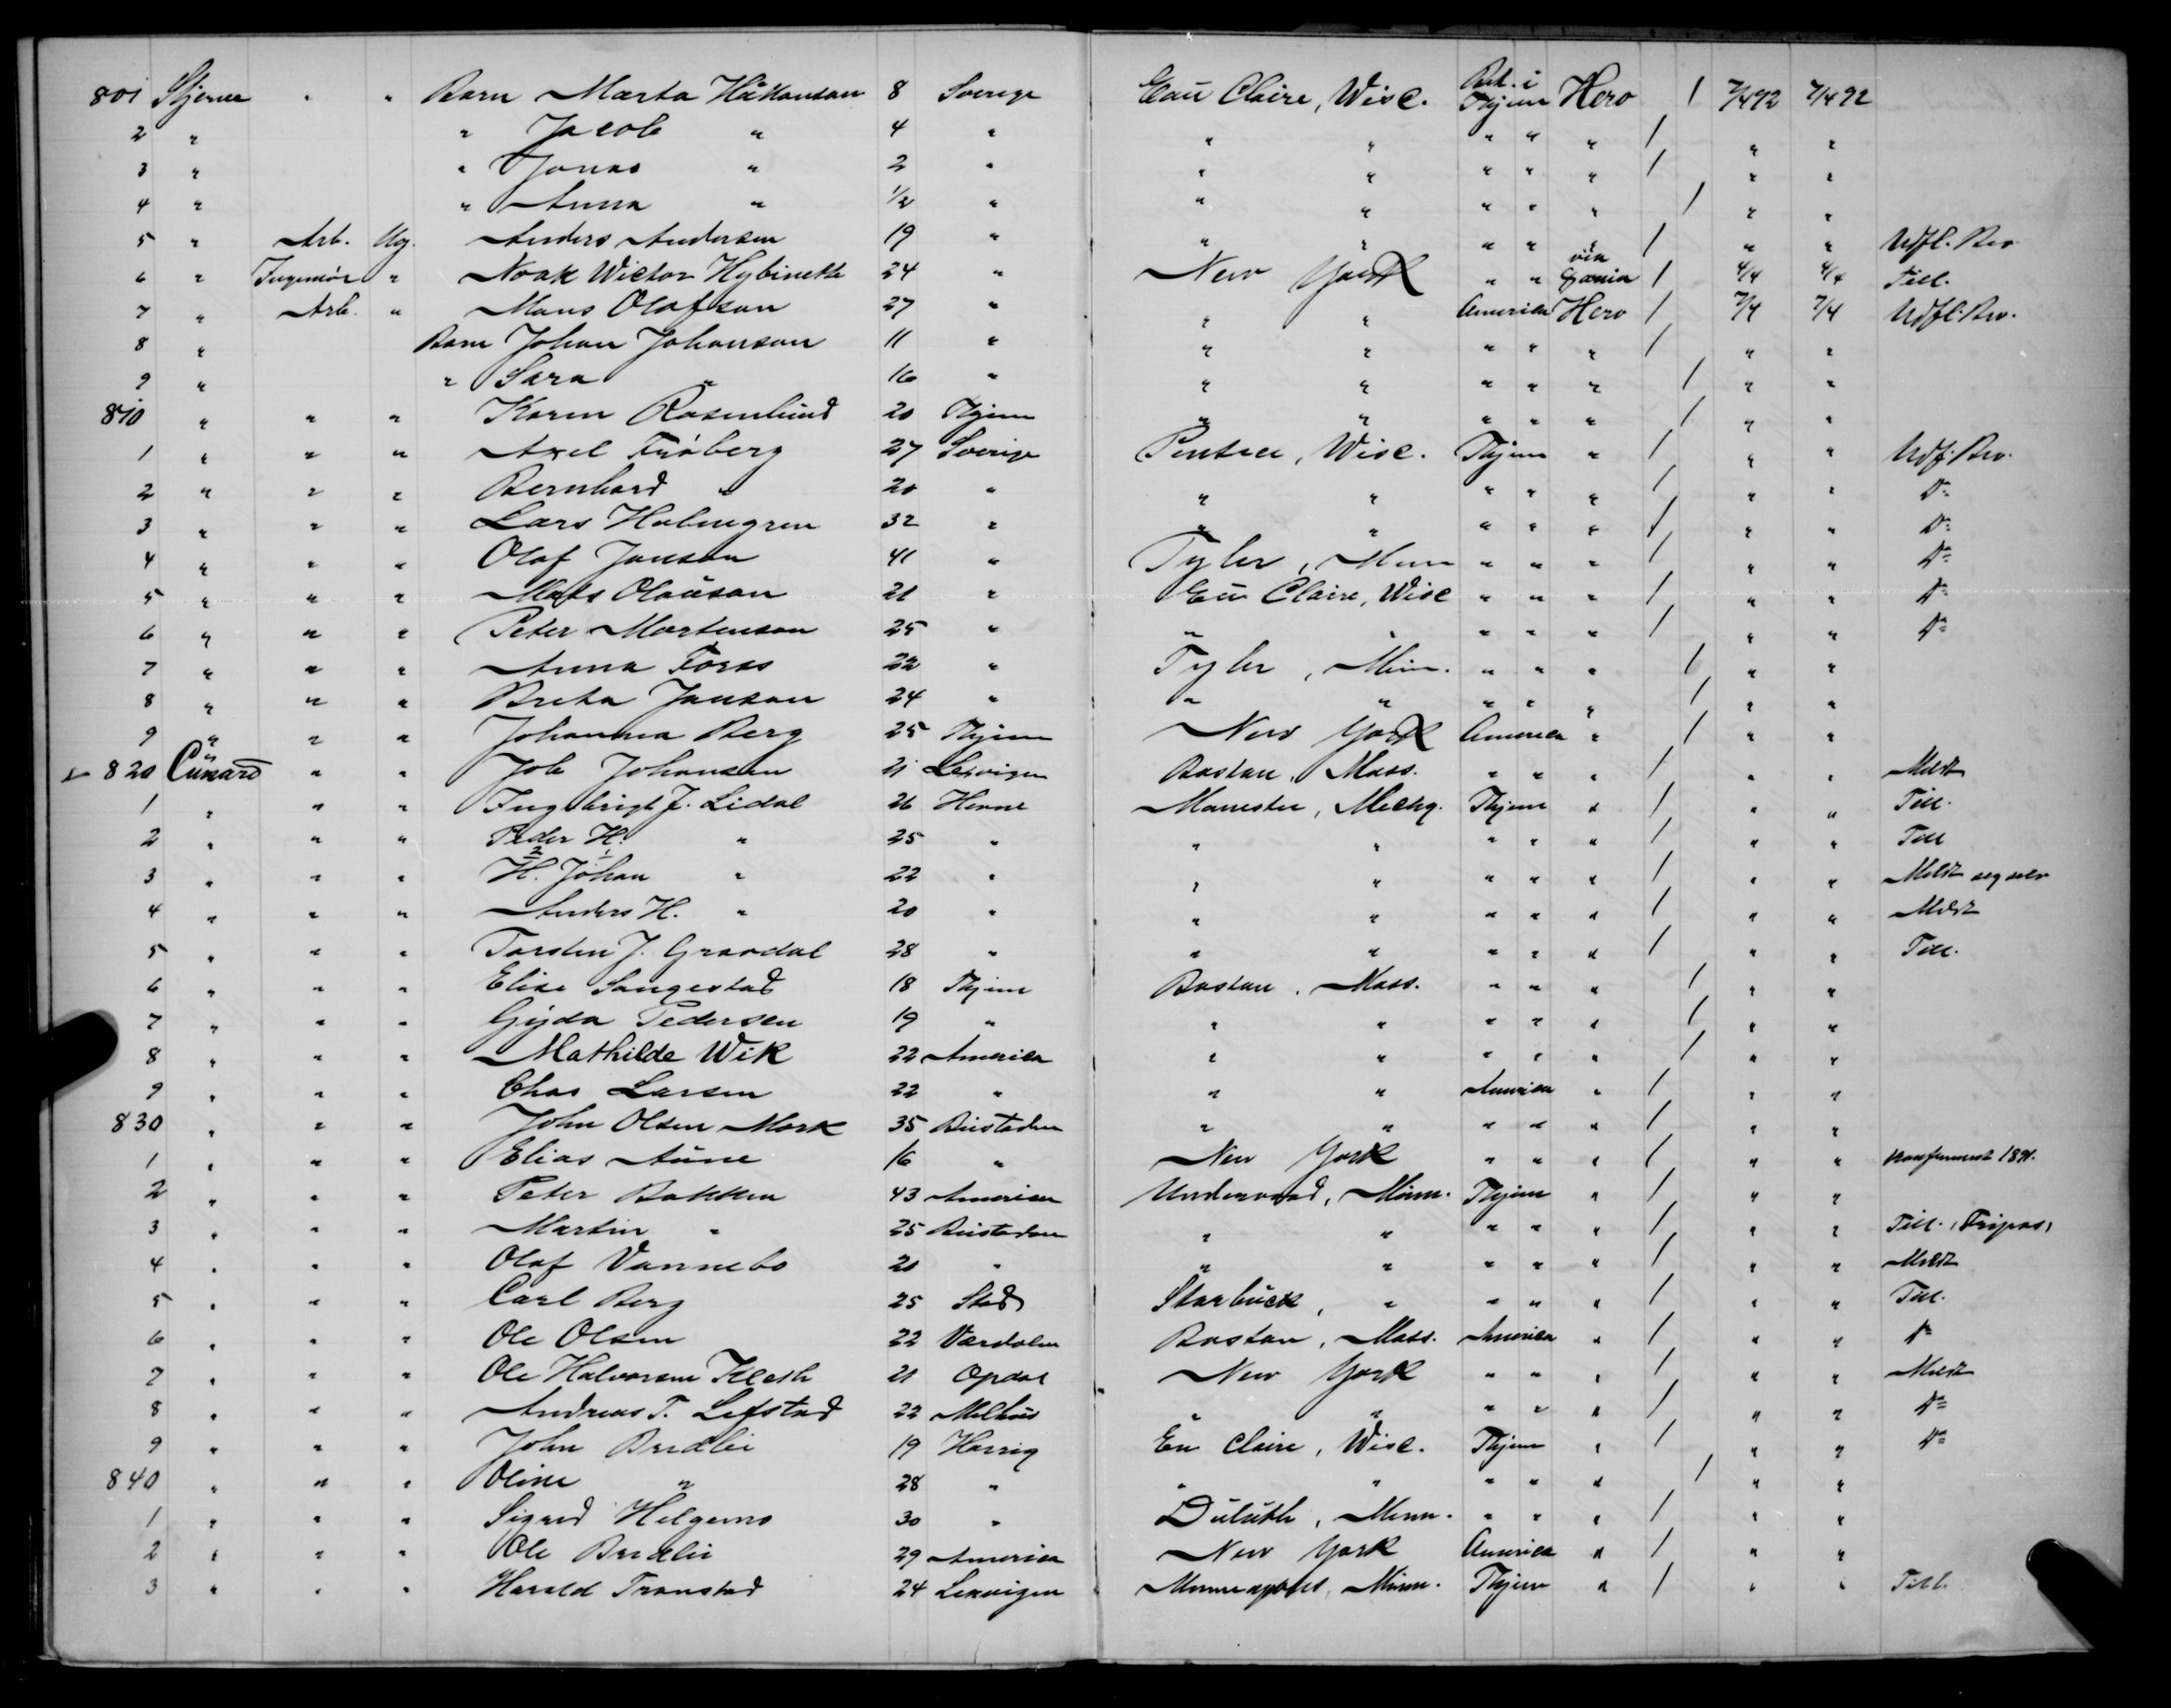 801 Stjernen " " Barn Marta Håkanson 8 Sverige Eau Claire, Wisc. Bet. i Thjem Hero 1 7/4 92 7/4 92
2 " " Jacob " 4 " " " " " " 1 " "
3 " " Jonas " 2 " " " " " " 1 " "
4 " " Anna " 1/2 " " " " " " 1 " "
5 " Arb. Ug. Anders Andersen 19 " " " " " " 1 " " Udfl. Bev.
6 " Ingeniör " Noak Wictor Hybinette 24 " New York " " via 1 4/4 4/4 Till.
7 " Arb. " Mans Olafson 27 " " " America Hero 1 7/4 7/4 Udfl. Bev.
8 " Barn Johan Johanson 11 " " " " " " 1 " "
9 " " Sara " 16 " " " " " " 1 " "
810 " " " Karen Rosenlund 20 Thjem " " " " " 1 " "
1 " " " Axel Fröberg 27 Sverige Pentsee, Wisc. Thjem " 1 " " Udf. Bev.
2 " " " Bernhard " 20 " " " " " " 1 " " Do
3 " " " Lars Holmgren 32 " " " " " " 1 " " Do
4 " " " Olof Janson 41 " Tyler, Minn " " " 1 " " Do
5 " " " Mats Olauson 21 " Eau Claire, Wisc " " " 1 " " Do
6 " " " Peter Mortenson 25 " " " " " " 1 " " Do
7 " " " Anna Forss 22 " Tyler, Minn. " " " 1 " "
8 " " " Breta Janson 24 " " " " " " 1 " "
9 " " " Johanna Berg 25 Thjem New York America " 1 " "
820 Cunard " " Job Johansen 21 Lexvigen Boston, Mass. " " " 1 " " Meldt
1 " " " Ingebrigt J. Lidal 26 Hevne Manestee, Mechg. Thjem " 1 " " Till.
2 " " " Peder H. " 25 " " " " " " 1 " " Till
3 " " " H. Johan " 22 " " " " " " 1 " " Meldt seg selv
4 " " " Anders H. " 20 " " " " " " 1 " " Meldt
5 " " " Torsten J. Gravdal 28 " " " " " " 1 " " Till.
6 " " " Elise Saugestad 18 Thjem Boston, Mass. " " " 1 " "
7 " " " Gyda Pedersen 19 " " " " " " 1 " "
8 " " " Mathilde Wik 22 America " " " " " 1 " "
9 " " " Chas Larsen 22 " " " America " 1 " "
830 " " " John Olsen Mork 35 Bustaden " " " " " 1 " "
1 " " " Elias Aune 16 " New York " " " 1 " " Konfirmert 1891.
2 " " " Peter Bakken 43 America Underwood, Minn. Thjem " 1 " "
3 " " " Martin " 25 Bustaden " " " " " 1 " " Till. (Fripas)
4 " " " Olaf Vannebo 20 " " " " " " 1 " " Meldt
5 " " " Carl Berg 25 Stod Starbuck, " " " " 1 " " Till.
6 " " " Ole Olsen 22 Værdalen Boston, Mass. America " 1 " " Do
7 " " " Ole Halvorsen Kleth 21 Opdal New York " " " 1 " " Meldt
8 " " " Andreas T. Lefstad 22 Melhus " " " " " 1 " " Do
9 " " " John Bredlie 19 Harrig Eu Claire, Wisc. Thjem " 1 " " Do
840 " " " Oline " 28 " " " " " " 1 " "
1 " " " Sigurd Helgemo 30 " Duluth, Minn. " " " 1 " "
2 " " " Ole Bredlie 29 America New York America " 1 " "
3 " " " Harald Tronstad 24 Lexvigen Minneapolis, Minn. Thjem " 1 " " Till.